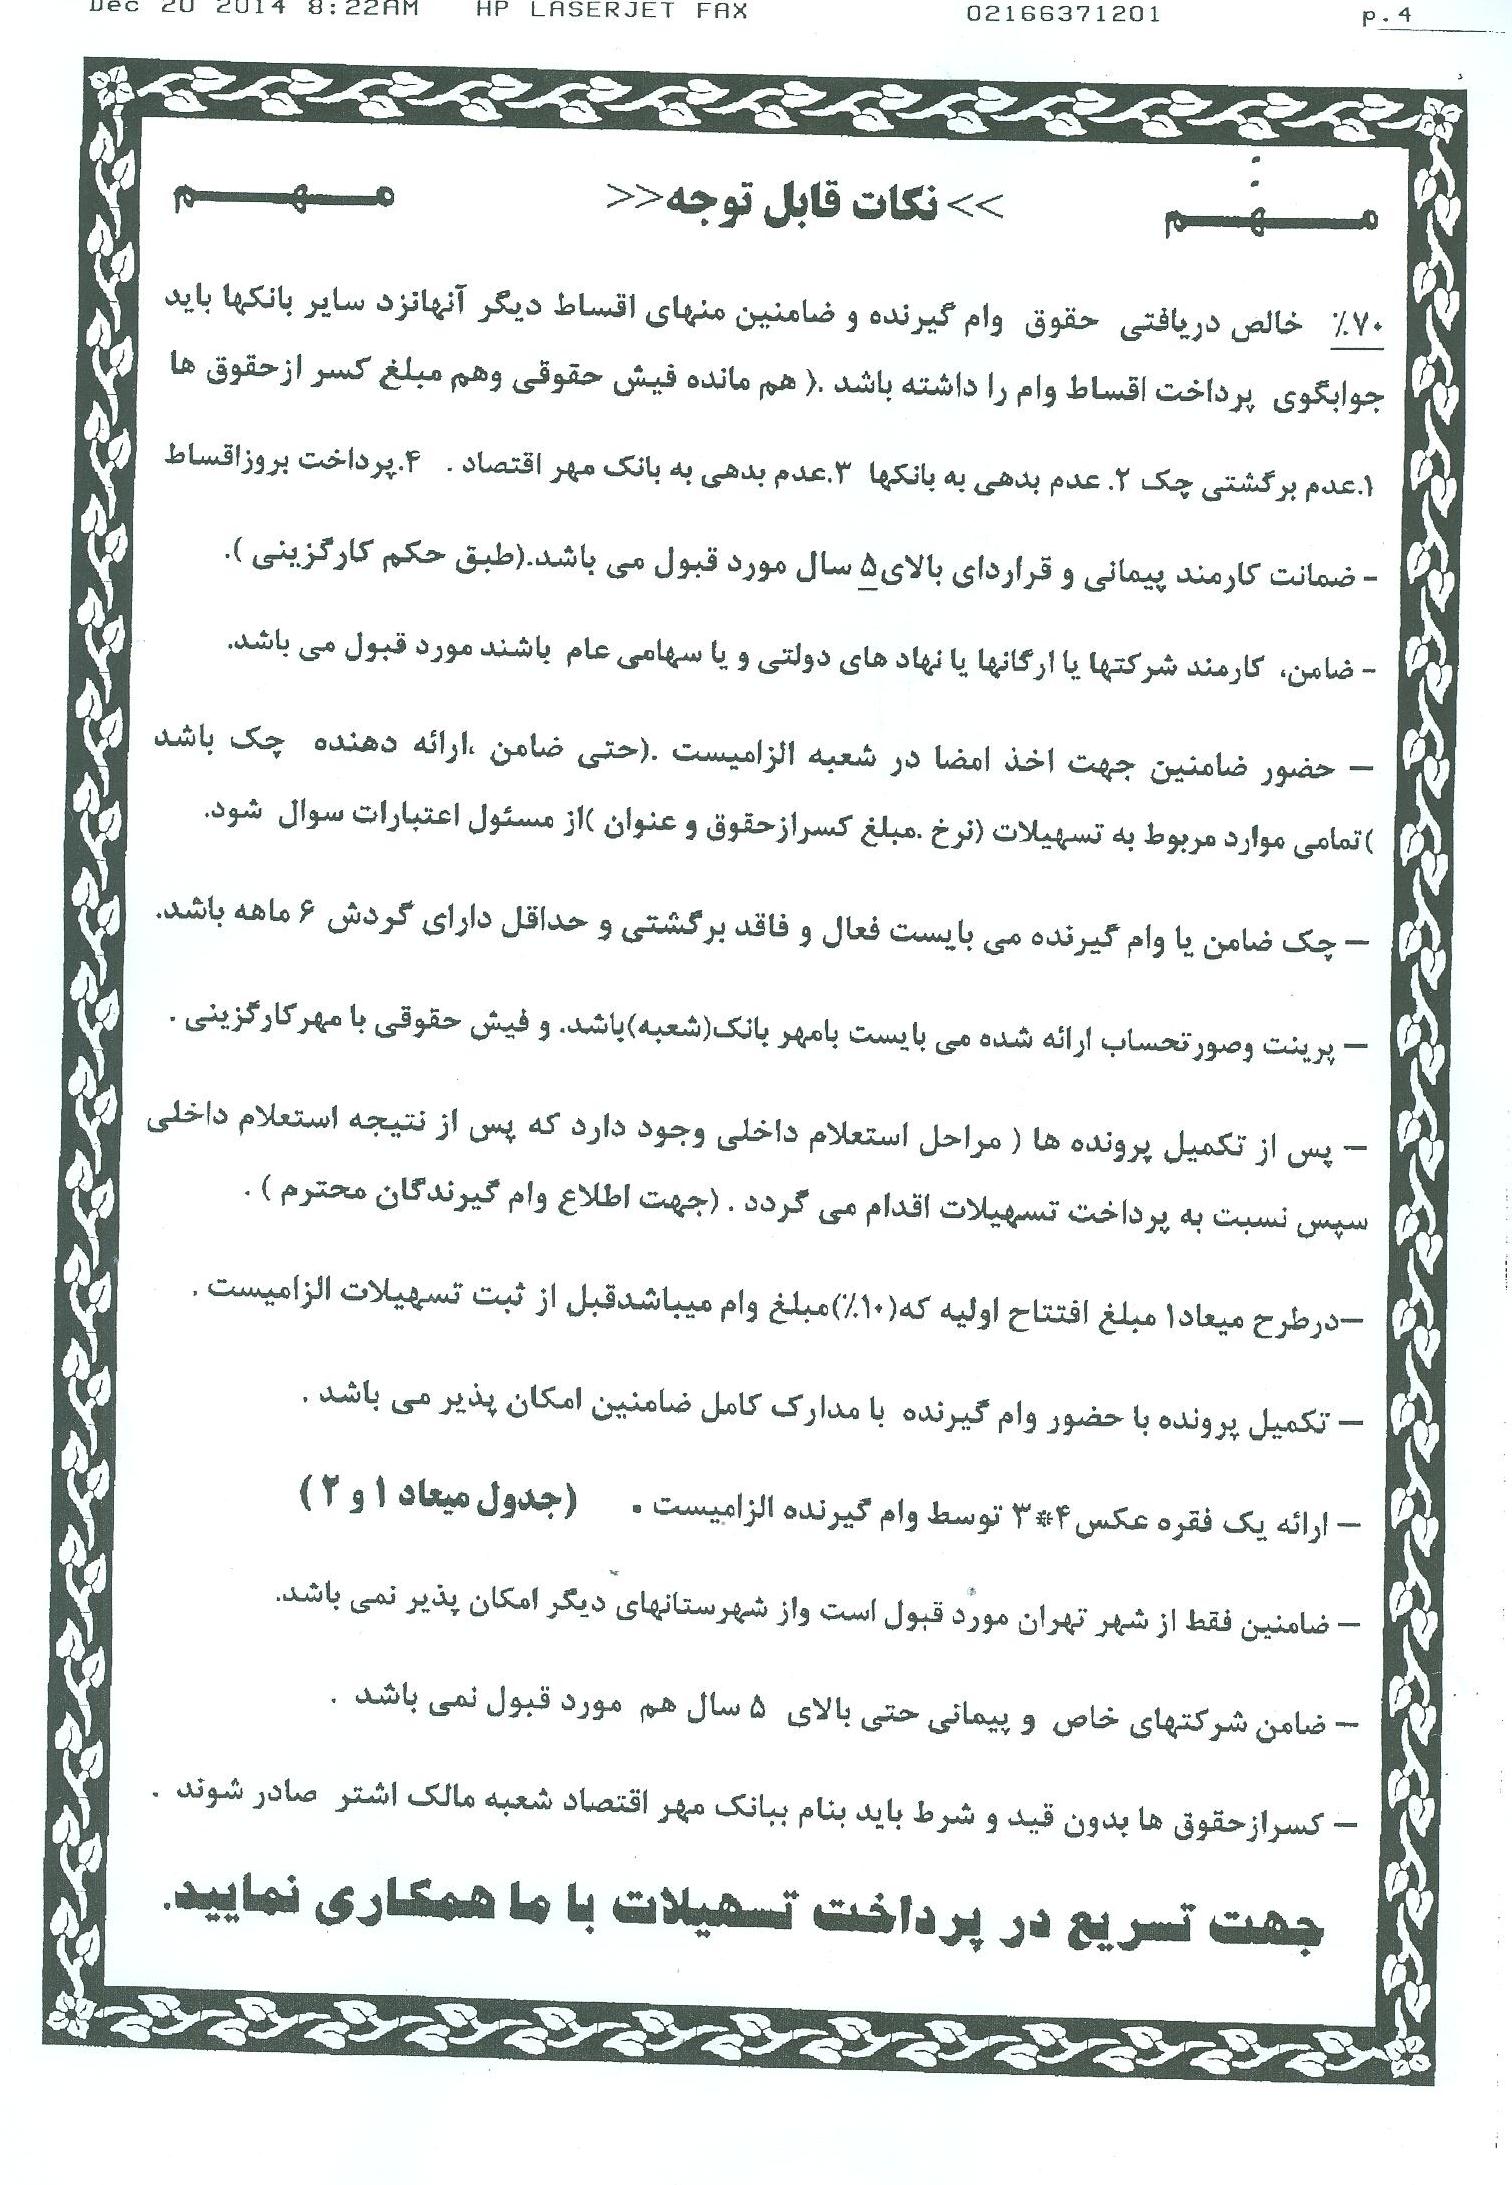 Dec 20 2014 8:22AM HP LASERJET FAX 02166371201 p.4
مـــهـــم >>نکات قابل توجه<< مـــهـــم
۷۰٪ خالص دریافتی حقوق وام گیرنده و ضامنین منهای اقساط دیگر آنهانزد سایر بانکها باید
جوابگوی پرداخت اقساط وام را داشته باشد .( هم مانده فیش حقوقی وهم مبلغ کسر ازحقوق ها
۱.عدم برگشتی چک ۲. عدم بدهی به بانکها ۳.عدم بدهی به بانک مهر اقتصاد . ۴.پرداخت بروزاقساط
- ضمانت کارمند پیمانی و قراردای بالای۵ سال مورد قبول می باشد.(طبق حکم کارگزینی ).
- ضامن، کارمند شرکتها یا ارگانها یا نهاد های دولتی و یا سهامی عام باشند مورد قبول می باشد.
– حضور ضامنین جهت اخذ امضا در شعبه الزامیست .(حتی ضامن ،ارائه دهنده چک باشد
)تمامی موارد مربوط به تسهیلات (نرخ .مبلغ کسرازحقوق و عنوان )از مسئول اعتبارات سوال شود.
– چک ضامن یا وام گیرنده می بایست فعال و فاقد برگشتی و حداقل دارای گردش ۶ ماهه باشد.
– پرینت وصورتحساب ارائه شده می بایست بامهر بانک(شعبه)باشد. و فیش حقوقی با مهرکارگزینی .
– پس از تکمیل پرونده ها ( مراحل استعلام داخلی وجود دارد که پس از نتیجه استعلام داخلی
سپس نسبت به پرداخت تسهیلات اقدام می گردد . (جهت اطلاع وام گیرندگان محترم ) .
–درطرح میعاد۱ مبلغ افتتاح اولیه که(۱۰٪)مبلغ وام میباشدقبل از ثبت تسهیلات الزامیست .
– تکمیل پرونده با حضور وام گیرنده با مدارک کامل ضامنین امکان پذیر می باشد .
– ارائه یک فقره عکس۴*۳ توسط وام گیرنده الزامیست . (جدول میعاد ۱ و ۲ )
– ضامنین فقط از شهر تهران مورد قبول است واز شهرستانهای دیگر امکان پذیر نمی باشد.
– ضامن شرکتهای خاص و پیمانی حتی بالای ۵ سال هم مورد قبول نمی باشد .
– کسرازحقوق ها بدون قید و شرط باید بنام ببانک مهر اقتصاد شعبه مالک اشتر صادر شوند .
جهت تسریع در پرداخت تسهیلات با ما همکاری نمایید.